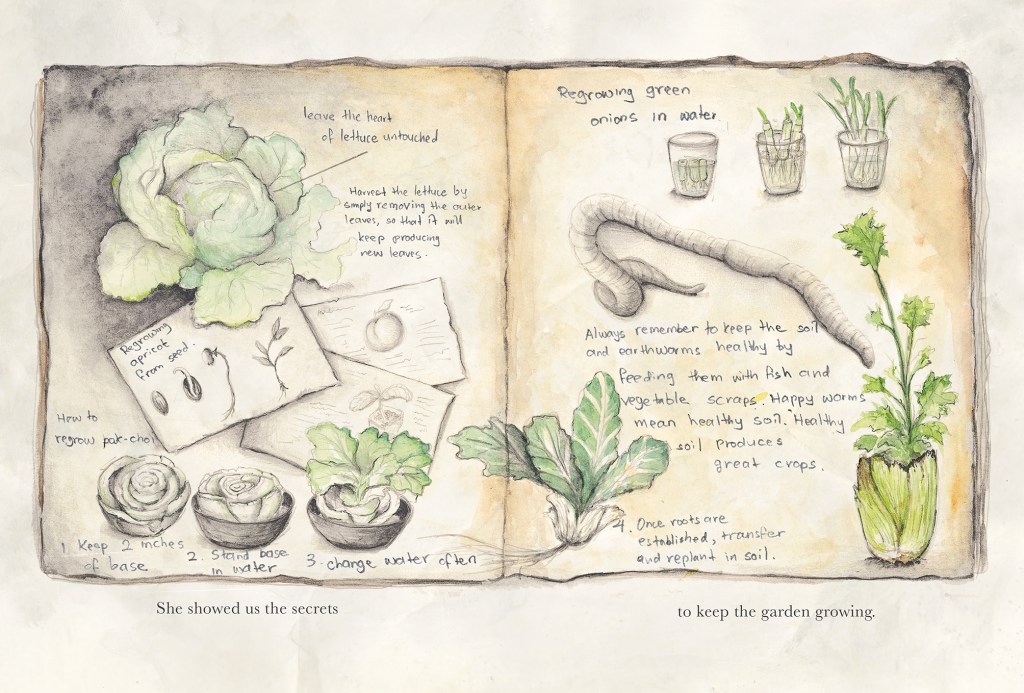 leave the heart
of lettuce untouched
Harvest the lettuce by
simply removing the outer
leaves, so that it will
keep producing
new leaves.
Regrowing
apricot
from seed.
How to
regrow pak-choi
1. Keep 2 inches
of base
2. Stand base
in water
3. change water often
Regrowing green
onions in water
Always remember to keep the soil
and earthworms healthy by
feeding them with fish and
vegetable scraps. Happy worms
mean healthy soil. Healthy
soil produces
great crops.
4. Once roots are
established, transfer
and replant in soil.
She showed us the secrets
to keep the garden growing.